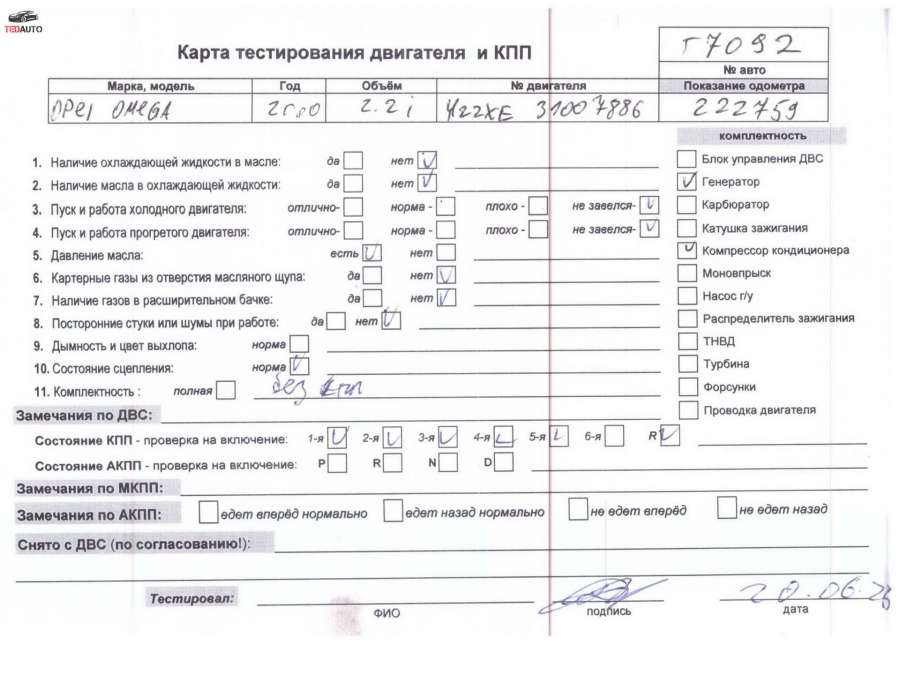 TEDAUTO
Карта тестирования двигателя и КПП
т7092
№ авто
Марка, модель Год Объём № двигателя Показание одометра
OPel OMEGA 2000 2.2i Y22XE 31007886 222759
комплектность
1. Наличие охлаждающей жидкости в масле: да нет V
2. Наличие масла в охлаждающей жидкости: да нет V
3. Пуск и работа холодного двигателя: отлично- норма - плохо - не завелся- V
4. Пуск и работа прогретого двигателя: отлично- норма - плохо - не завелся- V
5. Давление масла: есть V нет
6. Картерные газы из отверстия масляного щупа: да нет V
7. Наличие газов в расширительном бачке: да нет V
8. Посторонние стуки или шумы при работе: да нет V
9. Дымность и цвет выхлопа: норма
10. Состояние сцепления: норма V
11. Комплектность : полная без кпп
Блок управления ДВС
V Генератор
Карбюратор
Катушка зажигания
V Компрессор кондиционера
Моновпрыск
Насос г/у
Распределитель зажигания
ТНВД
Турбина
Форсунки
Проводка двигателя
Замечания по ДВС:
Состояние КПП - проверка на включение: 1-я V 2-я V 3-я V 4-я V 5-я V 6-я R V
Состояние АКПП - проверка на включение: P R N D
Замечания по МКПП:
Замечания по АКПП: едет вперёд нормально едет назад нормально не едет вперёд не едет назад
Снято с ДВС (по согласованию!):
Тестировал:
20.06.23
ФИО подпись дата